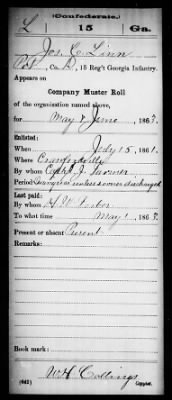 (Confederate.)
L 15 Ga.
Jos. C. Linn
Pvt., Co. D, 15 Reg't Georgia Infantry.
Appears on
Company Muster Roll
of the organization named above,
for May & June, 1863.
Enlisted:
When July 15, 1861.
Where Crawfordville
By whom Capt. J.
Period unless sooner discharged
Last paid:
By whom
To what time May 1, 186
Present or absent Present
Remarks:
Book mark:
W H Collings
(642) Copyist.